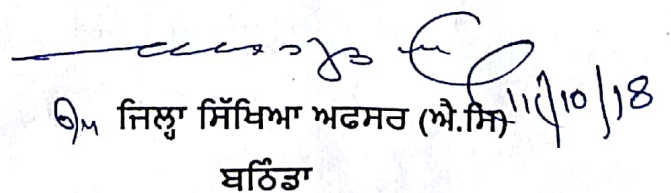 11/10/18
ਜਿਲ੍ਹਾ ਸਿੱਖਿਆ ਅਫਸਰ (ਐ.ਸਿ)
ਬਠਿੰਡਾ